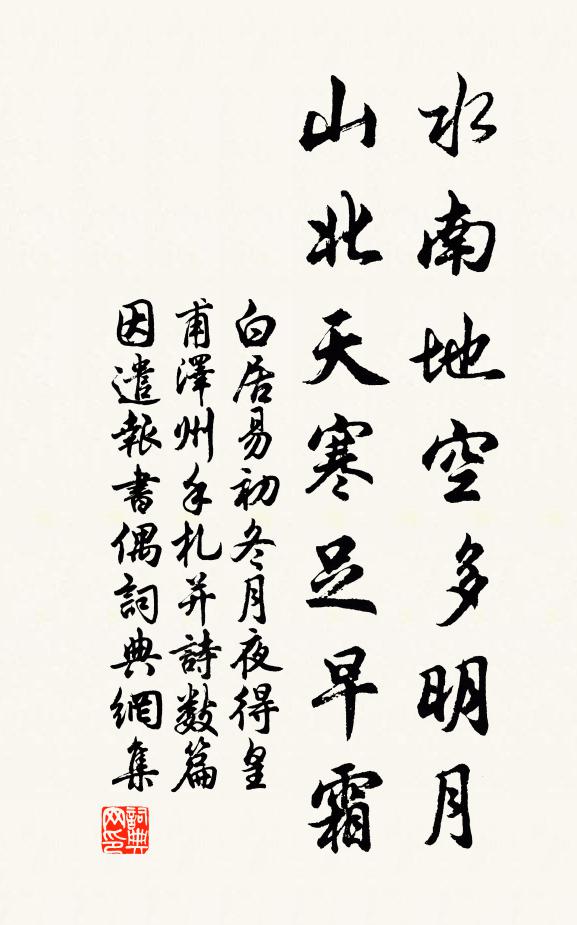 水南地空多明月
山北天寒足早霜
白居易初冬月夜得皇
甫澤州手札并詩數篇
因遣報書偶詞典網集
詞典网印